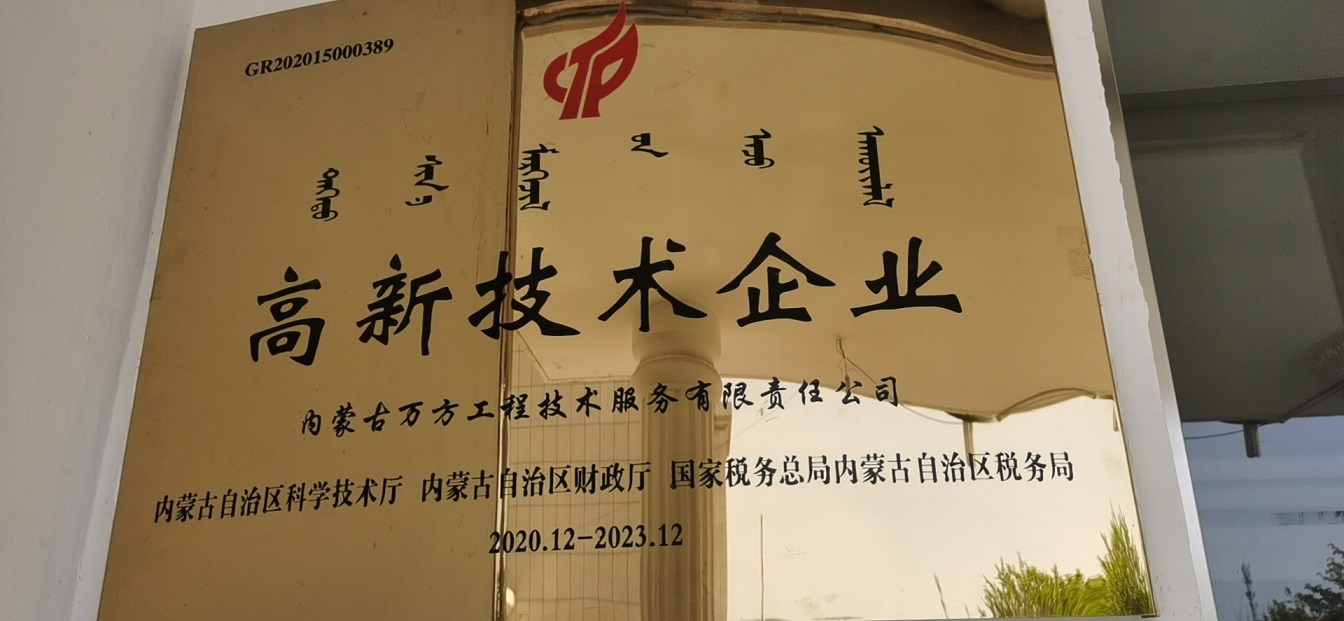 GR202015000389
高新技术企业
内蒙古万方工程技术服务有限责任公司
内蒙古自治区科学技术厅 内蒙古自治区财政厅 国家税务总局内蒙古自治区税务局
2020.12-2023.12